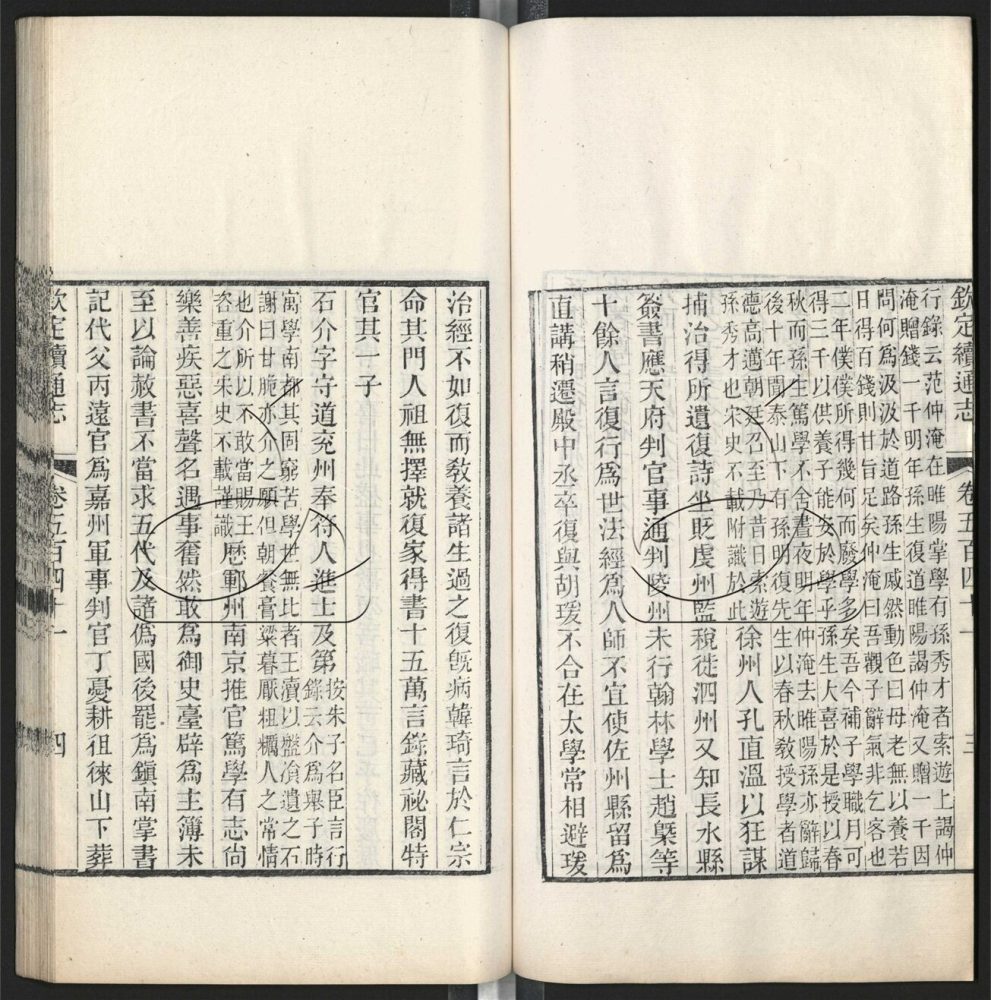 欽定續通志 卷五百四十一 三
行錄云范仲淹在睢陽掌學有孫秀才者索遊上謁仲
淹贈錢一千明年孫生復道睢陽謁仲淹又贈一千因
問何爲汲汲於道路孫生戚然動色曰母老無以養若
日得百錢則甘旨足矣仲淹曰吾觀子辭氣非乞客也
二年僕僕所得幾何而廢學多矣吾今補子學職月可
得三千以供養子能安於學乎孫生大喜於是授以春
秋而孫生篤學不舍晝夜明年仲淹去睢陽孫亦辭歸
後十年聞泰山下有孫明復先生以春秋敎授學者道
德高邁朝廷召至乃昔日索遊
孫秀才也宋史不載附識於此
徐州人孔直溫以狂謀
捕治得所遺復詩坐貶虔州監稅徙泗州又知長水縣
簽書應天府判官事通判陵州未行翰林學士趙槩等
十餘人言復行爲世法經爲人師不宜使佐州縣留爲
直講稍遷殿中丞卒復與胡瑗不合在太學常相避瑗
治經不如復而敎養諸生過之復旣病韓琦言於仁宗
命其門人祖無擇就復家得書十五萬言錄藏祕閣特
官其一子
石介字守道兖州奉符人進士及第
按朱子名臣言行
錄云介爲舉子時
寓學南都其固窮苦學世無比者王瀆以盤飡遺之石
謝曰甘脆亦介之願但朝饗膏粱暮厭粗糲人之常情
也介所以不敢當賜王
咨重之宋史不載謹識
歷鄆州南京推官篤學有志尙
樂善疾惡喜聲名遇事奮然敢爲御史臺辟爲主簿未
至以論赦書不當求五代及諸僞國後罷爲鎭南掌書
記代父丙遠官爲嘉州軍事判官丁憂耕徂徠山下葬
欽定續通志 卷五百四十一 四